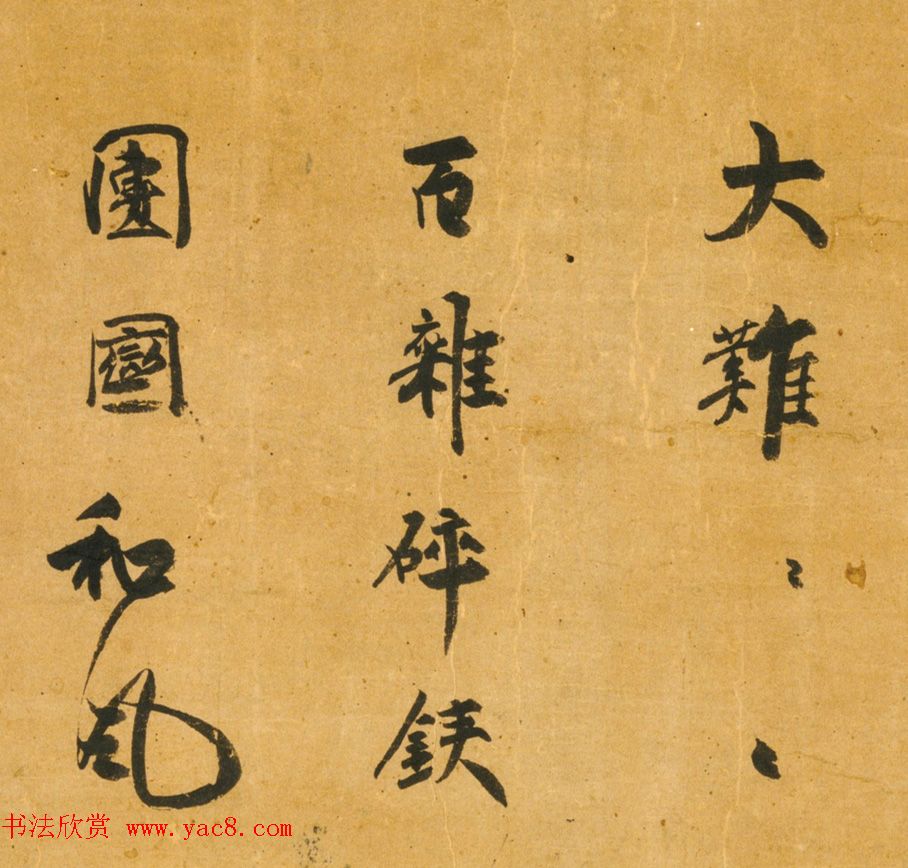 大難〻〻
百雜碎鉄
團圞和風
书法欣赏 www.yac8.com